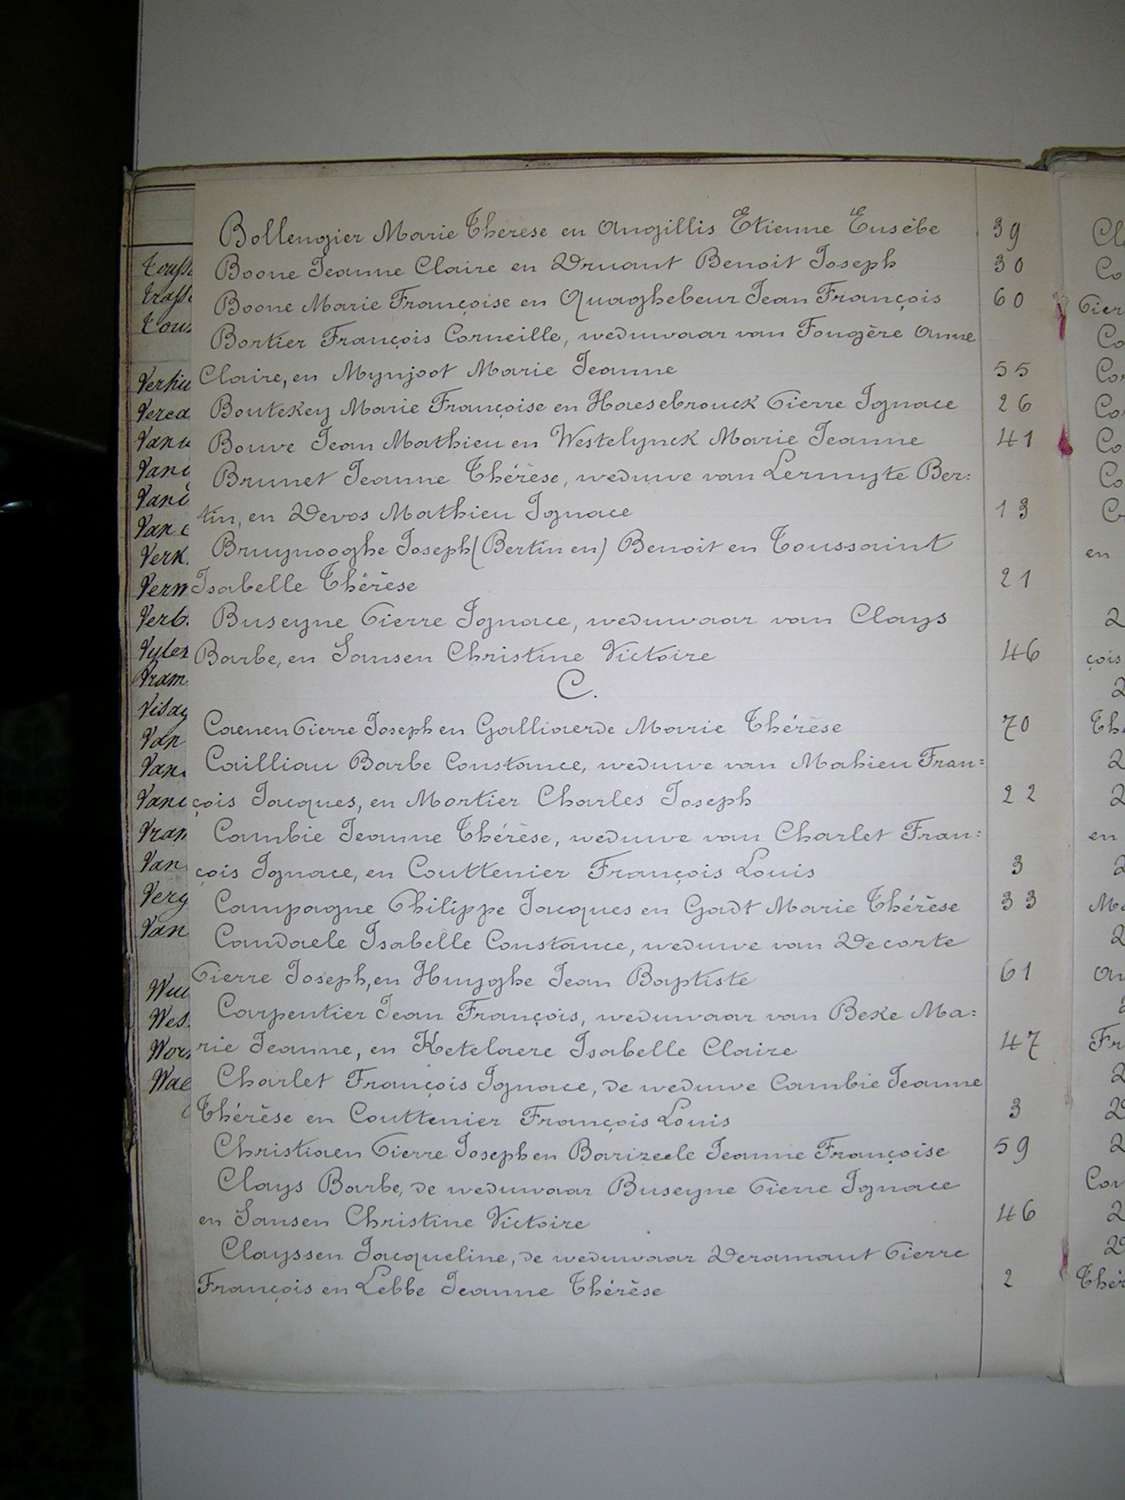 Bollengier Marie Thérèse en Angillis Etienne Eusébe 39
Boone Jeanne Claire en Druant Benoit Joseph 30
Boone Marie Françoise en Quaghebeur Jean François 60
Bortier François Corneille, weduwaar van Fougère Anne
Claire, en Mynjoot Marie Jeanne 55
Boutekey Marie Françoise en Haesebrouck Pierre Ignace 26
Bouve Jean Mathieu en Westelynck Marie Jeanne 41
Brunet Jeanne Thérèse, weduwe van Lermyte Ber=
tin, en Devos Mathieu Ignace 13
Bruynooghe Joseph (Bertin en) Benoit en Toussaint
Isabelle Thérèse 21
Buseyne Pierre Ignace, weduwaar van Clays
Barbe, en Sansen Christine Victoire 46
C.
Caenen Pierre Joseph en Galliaerde Marie Thérèse 70
Cailliau Barbe Constance, weduwe van Mahieu Fran=
çois Jacques, en Mortier Charles Joseph 22
Cambie Jeanne Thérèse, weduwe van Charlet Fran=
çois Ignace, en Couttenier François Louis 3
Campagne Philippe Jacques en Gadt Marie Thérèse 33
Candaele Isabelle Constance, weduwe van Decorte
Pierre Joseph, en Huyghe Jean Baptiste 61
Carpentier Jean François, weduwaar van Beke Ma=
rie Jeanne, en Ketelaere Isabelle Claire 47
Charlet François Ignace, de weduwe Cambie Jeanne
Thérèse en Couttenier François Louis 3
Christiaen Pierre Joseph en Barizeele Jeanne Françoise 59
Clays Barbe, de weduwaar Buseyne Pierre Ignace
en Sansen Christine Victoire 46
Clayssen Jacqueline, de weduwaar Deramaut Pierre
François en Lebbe Jeanne Thérèse 2